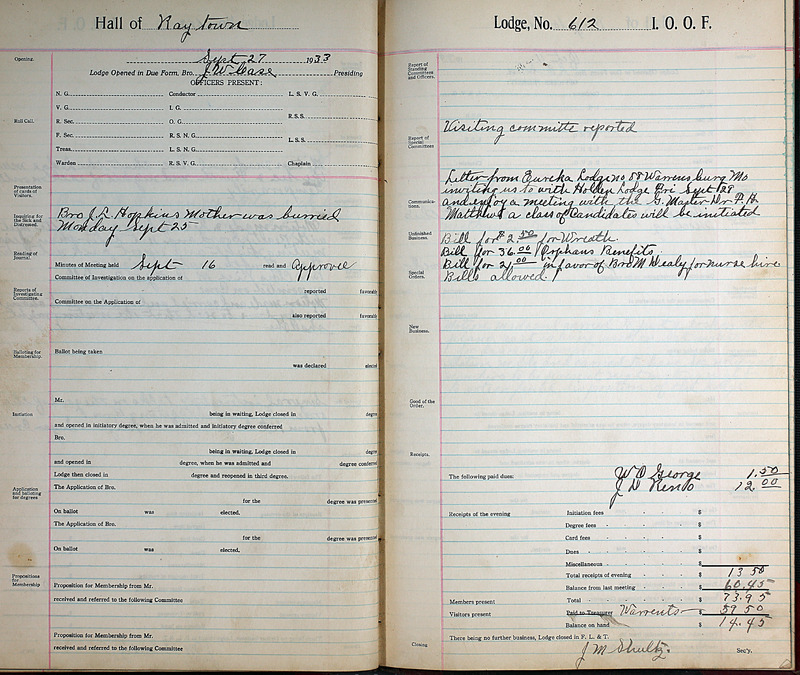 Hall of Raytown
Sept 27 1933
Lodge Opened in Due Form, Bro. J W Case Presiding
OFFICERS PRESENT:
N. G. Conductor L. S. V. G.
V. G. I. G.
R. S. S.
R. Sec. O. G.
F. Sec. R. S. N. G.
L. S. S.
Treas. L. S. N. G.
Warden R. S. V. G. Chaplain
Opening.
Roll Call.
Presentation
of cards of
Visitors.
Inquiring for
the Sick and
Distressed.
Bro J. L. Hopkins Mother was burried
Monday Sept 25
Reading of
Journal.
Minutes of Meeting held Sept 16 read and Approved
Committee of Investigation on the application of
reported favorabl
Reports of
Investigating
Committee.
Committee on the Application of
also reported favorabl
Balloting for
Membership.
Ballot being taken
was declared elected
Mr.
Initiation
being in waiting, Lodge closed in degree
and opened in initiatory degree, when he was admitted and initiatory degree conferred
Bro.
being in waiting, Lodge closed in degree
and opened in degree, when he was admitted and degree conferred
Lodge then closed in degree and reopened in third degree.
Application
and balloting
for degrees
The Application of Bro.
for the degree was presented
On ballot was elected.
The Application of Bro.
for the degree was presented
On ballot was elected.
Propositions
for
Membership
Proposition for Membership from Mr.
received and referred to the following Committee
Proposition for Membership from Mr.
received and referred to the following Committee
Lodge, No. 612 I. O. O. F.
Report of
Standing
Committees
and Officers.
Report of
Special
Committees
Visiting committe reported
Communica-
tions.
Letter from Eureka Lodge no 88 Warrensburg Mo
inviting us to with Holden Lodge Fri Sept 29
and enjoy a meeting with the G. Master Dr. P. H.
Matthews a class of Candidates will be initiated
Unfinished
Business.
Bill for $2.50 for Wreath.
Bill for 36.00 Orphans Benefits.
Bill for 21.00 in favor of Bro M Dealy for nurse hire
Bills allowed.
Special
Orders.
New
Business.
Good of the
Order.
Receipts.
The following paid dues: W O George 1.50
J D Reno 12 00
Receipts of the evening Initiation fees $
Degree fees $
Card fees $
Dues $
Miscellaneous $
Total receipts of evening $ 13 50
Balance from last meeting $ 60.45
Members present Total $ 73.95
Visitors present Paid to Treasurer Warrents $ 59 50
Balance on hand $ 14.45
There being no further business, Lodge closed in F. L. & T.
Closing J M Shultz. Sec'y.